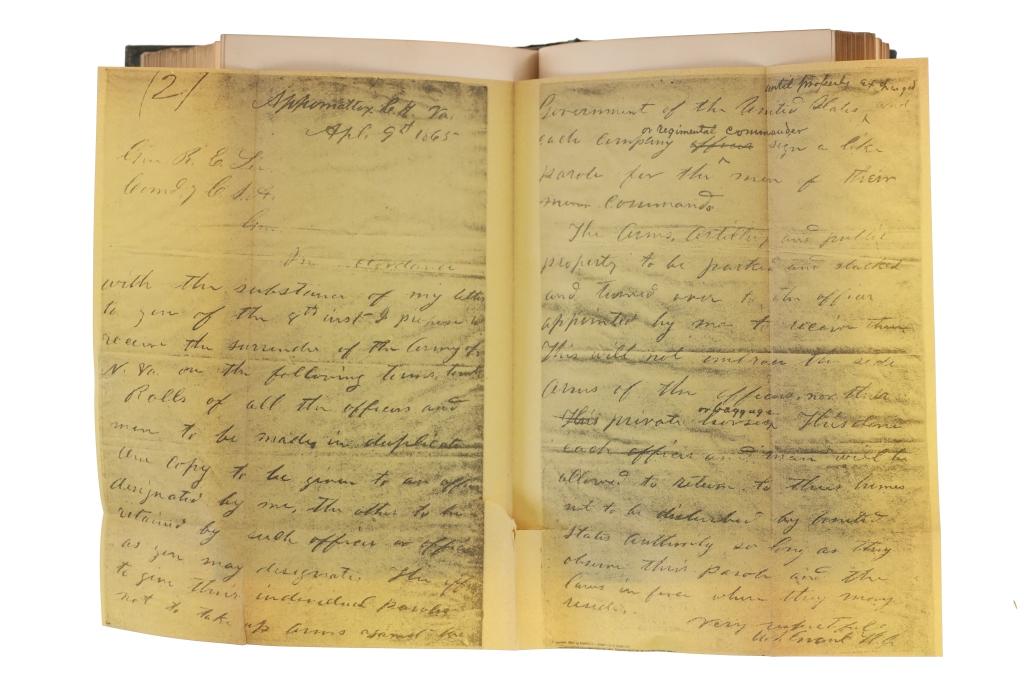 (2)
Appomattox C.H. Va.
Apl. 9th 1865
Gen R. E. Lee
Comdg C.S.A.
Gen.
In accordance
with the substance of my letter
to you of the 8th inst I propose to
receive the surrender of the Army of
N. Va. on the following terms, towit
Rolls of all the officers and
men to be made in duplicate
One copy to be given to an officer
designated by me, the other to be
retained by such officer or officers
as you may designate. The officers
to give their individual paroles
not to take up arms against the
until properly exchanged
Government of the United States and
or regimental commander
each company officer sign a like
parole for the men of their
commands
The Arms, Artillery and public
property to be parked and stacked
and turned over to the officer
appointed by me to receive them
This will not embrace the side
Arms of the officers, nor their
or baggage
This private horses. This done
each officer and man will be
allowed to return to their homes
not to be disturbed by United
States Authority so long as they
observe their parole and the
laws in force where they may
reside.
Very respectfully
U. S. Grant Lt. Gn